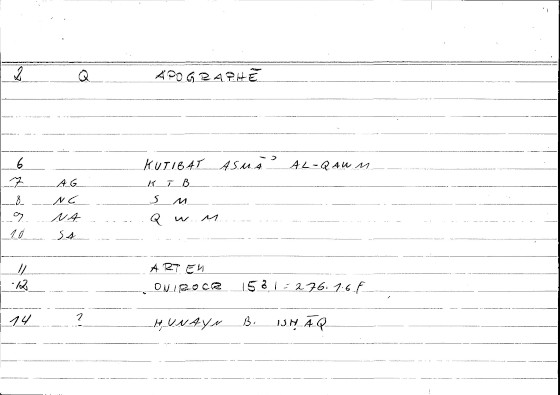 2 Q APOGRAPHĒ
6 KUTIBAT ASMĀʾ AL-QAWM
7 AG K T B
8 NC S M
9 NA Q W M
10 SA
11 ARTEM
12 ONIROCR 153,1 = 276.16F
14 ? ḤUNAYN B. ISḤĀQ